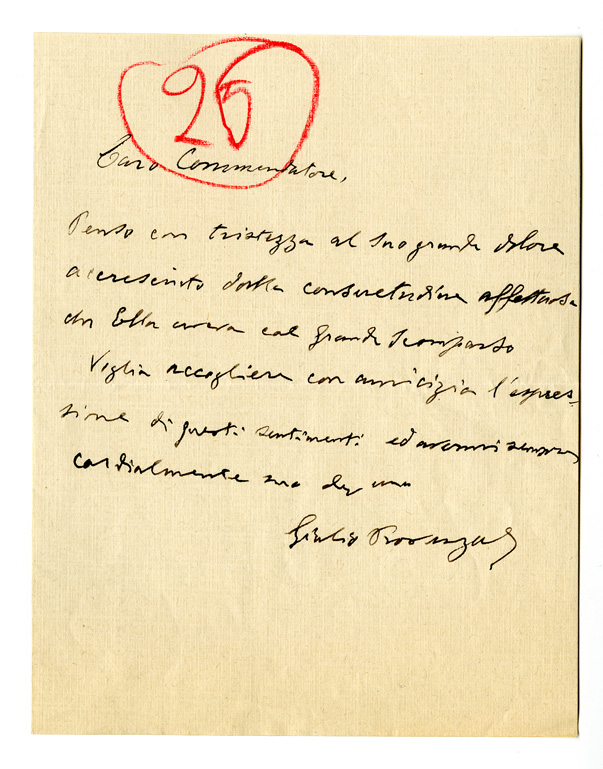 25
Caro Commendatore,
Penso con tristezza al Suo grande dolore
accresciuto dalla consuetudine affettuosa
che Ella aveva col grande Scomparso
Voglia accogliere con amicizia l'espres-
sione di questi sentimenti ed avermi sempre
cordialmente suo dev.mo
Giulio Provenzal